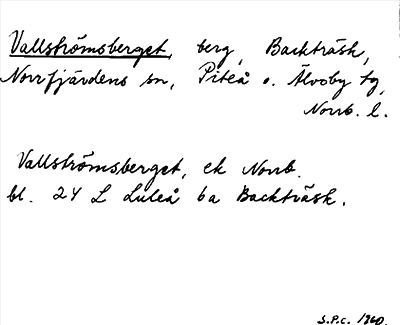 Vallströmsberget, berg, Backträsk,
Norrfjärdens sn, Piteå o. Älvsby tg,
Norrb. l.
Vallströmsberget, ek Norrb.
bl. 24 L Luleå 6a Backträsk.
S.P.C. 1960.